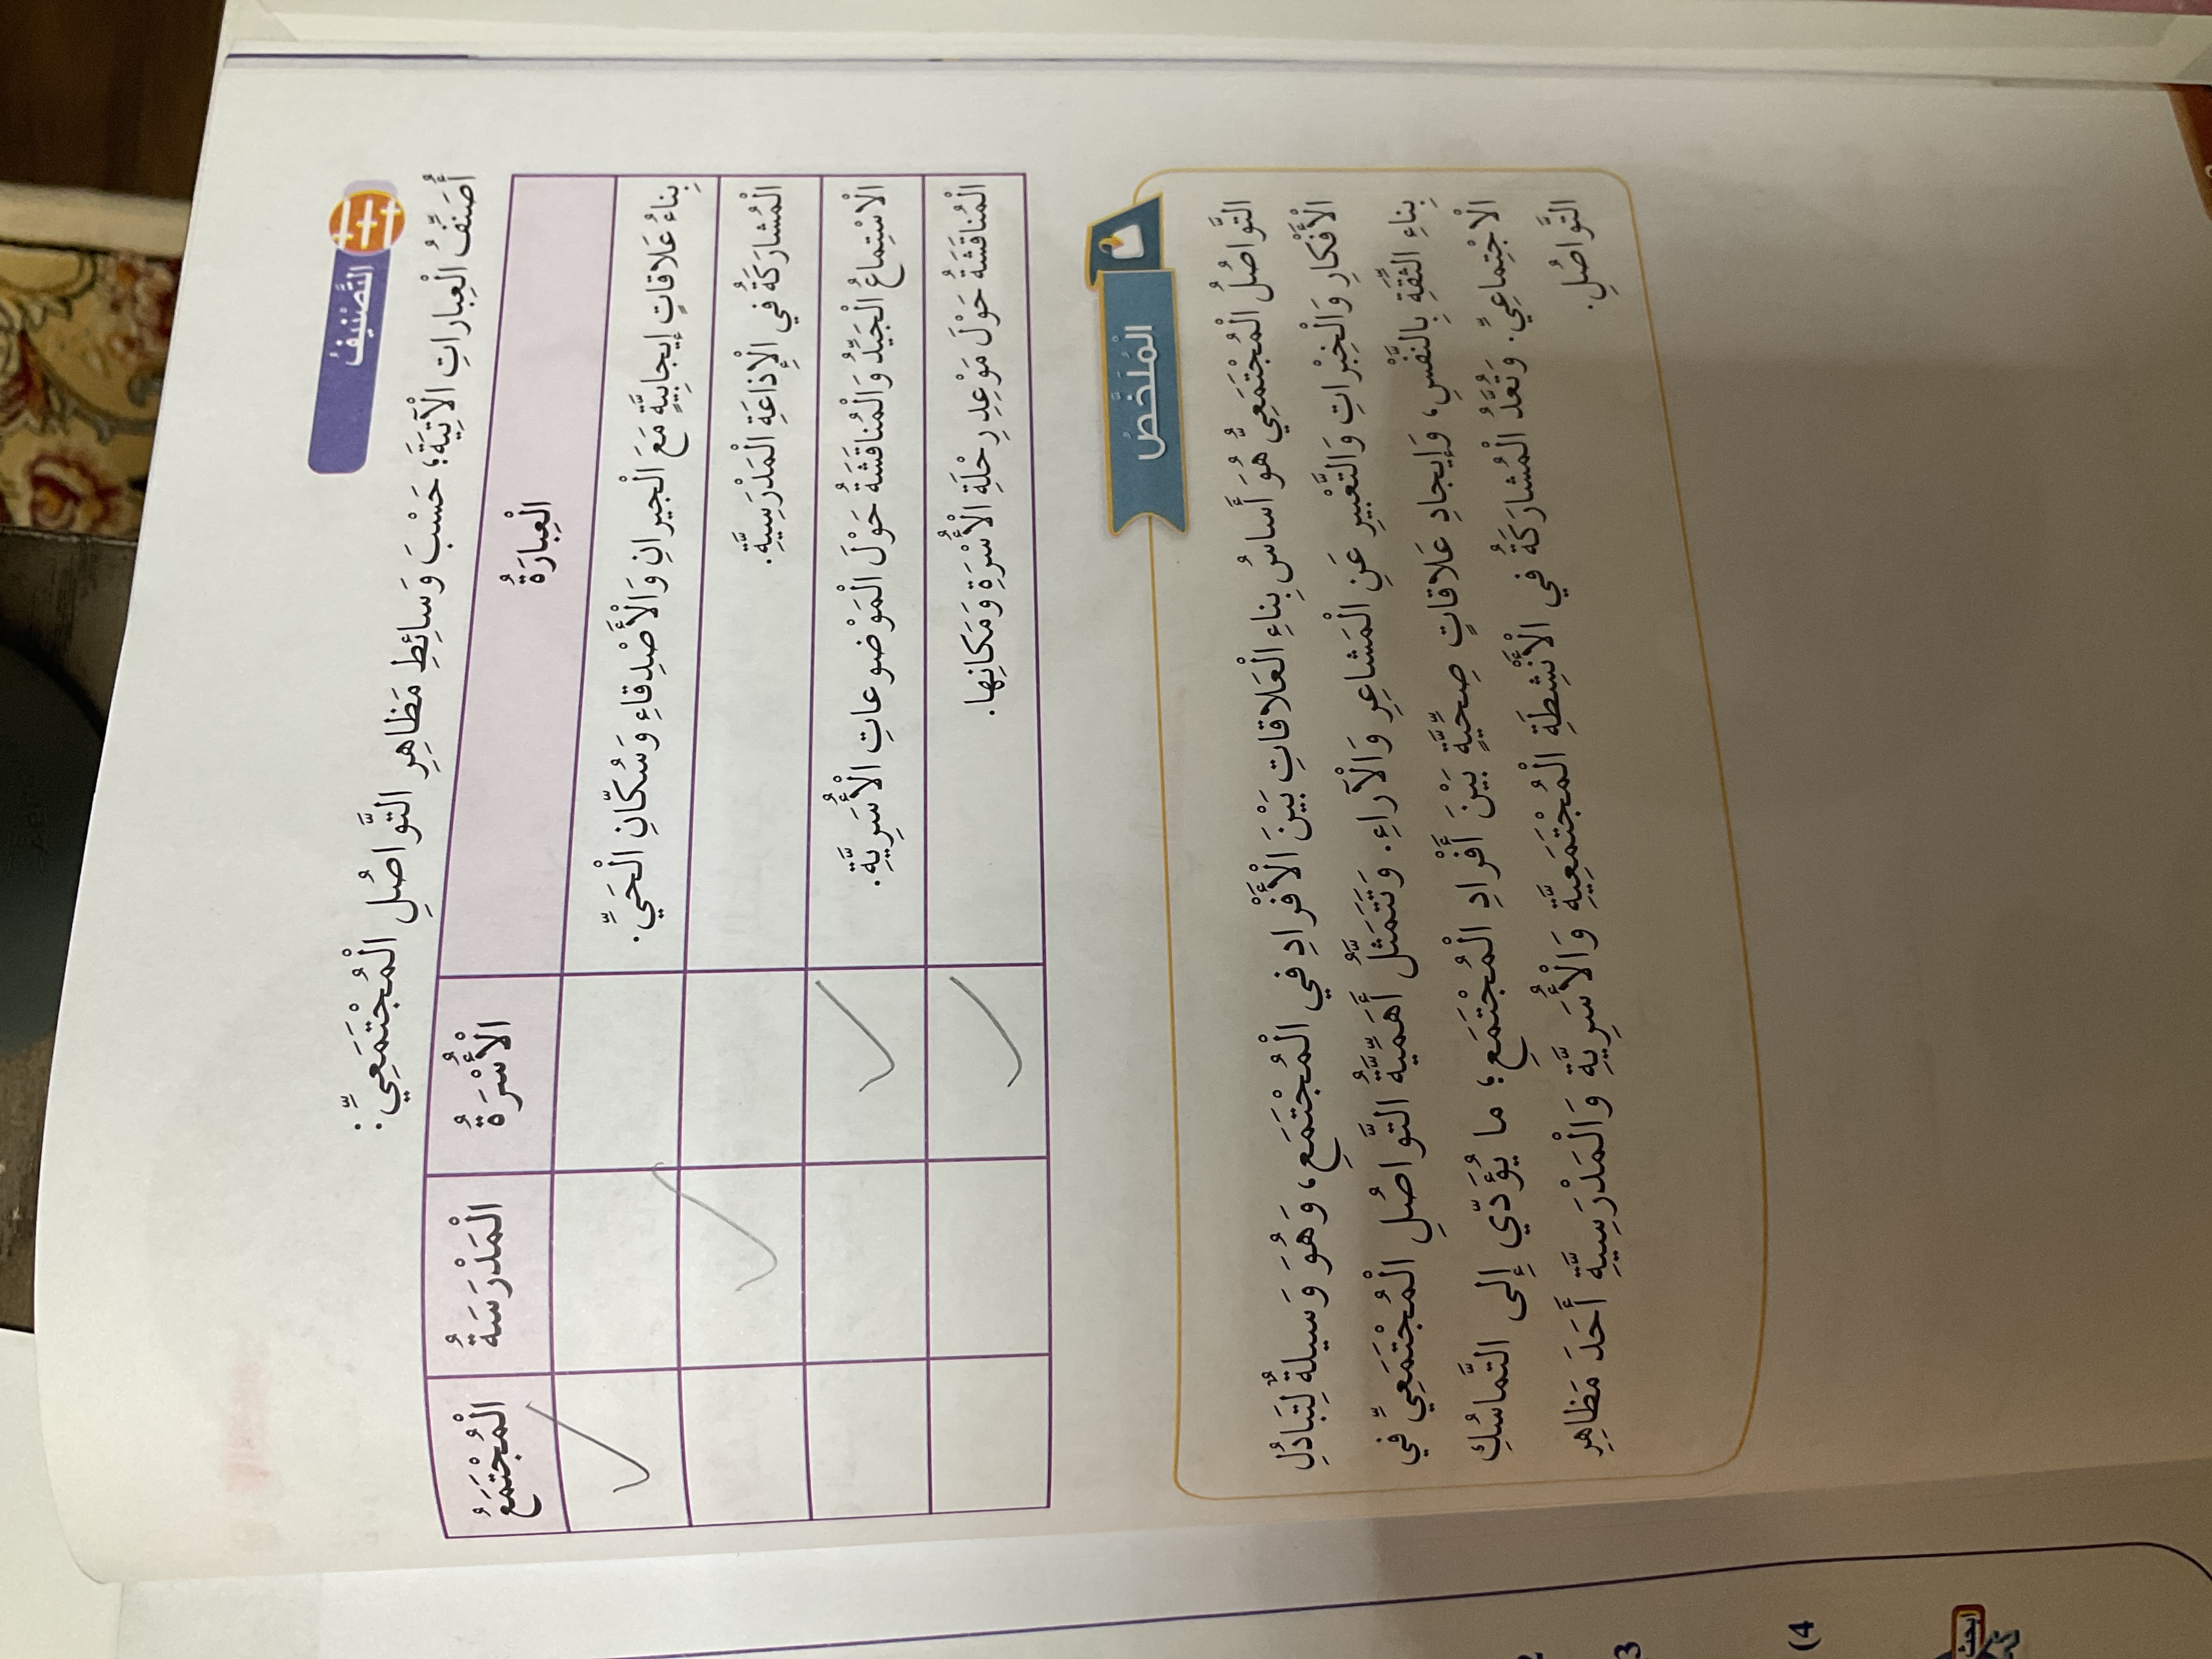 التَّصْنيفُ
أُصَنِّفُ الْعِباراتِ الْآتِيَةَ؛ حَسْبَ وَسائِطِ مَظاهِرِ التَّواصُلِ الْمُجْتَمَعِيِّ:
الْعِبارَةُ الْأُسْرَةُ الْمَدْرَسَةُ الْمُجْتَمَعُ
بِناءُ عَلاقاتٍ إيجابِيَّةٍ مَعَ الْجيرانِ وَالْأَصْدِقاءِ وَسُكّانِ الْحَيِّ. ✓
الْمُشارَكَةُ في الْإِذاعَةِ الْمَدْرَسِيَّةِ. ✓
الْاسْتِماعُ الْجَيِّدُ وَالْمُناقَشَةُ حَوْلَ الْمَوْضوعاتِ الْأُسَرِيَّةِ. ✓
الْمُناقَشَةُ حَوْلَ مَوْعِدِ رِحْلَةِ الْأُسْرَةِ وَمَكانِها. ✓
الْمُلَخَّصُ
التَّواصُلُ الْمُجْتَمَعِيُّ هُوَ أَساسُ بِناءِ الْعَلاقاتِ بَيْنَ الْأَفْرادِ في الْمُجْتَمَعِ، وَهُوَ وَسيلَةٌ لِتَبادُلِ
الْأَفْكارِ وَالْخِبْراتِ وَالتَّعْبيرِ عَنِ الْمَشاعِرِ وَالْآراءِ. وَتَتَمَثَّلُ أَهَمِّيَّةُ التَّواصُلِ الْمُجْتَمَعِيِّ في
بِناءِ الثِّقَةِ بِالنَّفْسِ، وَإيجادِ عَلاقاتٍ صِحِّيَّةٍ بَيْنَ أَفْرادِ الْمُجْتَمَعِ؛ ما يُؤَدّي إِلى التَّماسُكِ
الْاجْتِماعِيِّ. وَتُعَدُّ الْمُشارَكَةُ في الْأَنْشِطَةِ الْمُجْتَمَعِيَّةِ وَالْأُسَرِيَّةِ وَالْمَدْرَسِيَّةِ أَحَدَ مَظاهِرِ
التَّواصُلِ.
3
(4
ابحث